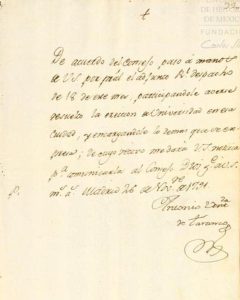 ✝
De acuerdo del Consejo paso á manos
de V.S. por mí el adjunto Rl. despacho
de 18 de este mes, participandole averse
resuelto la ereccion de Universidad en esa
Ciudad, y encargandole lo demas que se ex-
presa; de cuyo recivo me dará V.S. noticia
pa. comunicarla al Consejo. Dios gue. á V.S.
ms. as. Madrid 26 de Nove. de 1791.
Antonio Ventª
de Taranco